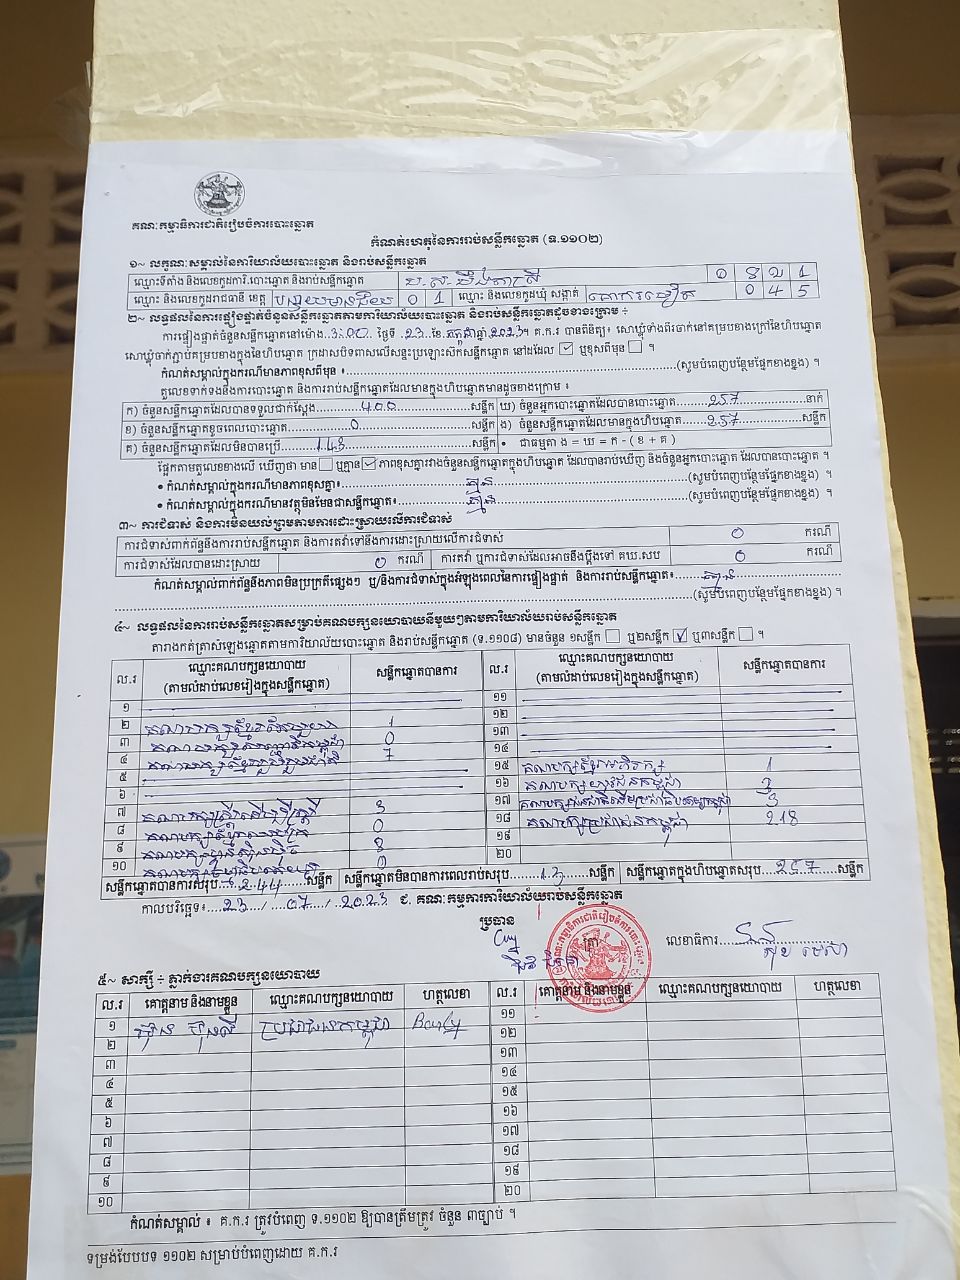 គណៈកម្មាធិការជាតិរៀបចំការបោះឆ្នោត
កំណត់ហេតុនៃការរាប់សន្លឹកឆ្នោត (ទ.១១០២)
១~ លក្ខណៈសម្គាល់នៃការិយាល័យបោះឆ្នោត និងរាប់សន្លឹកឆ្នោត
ឈ្មោះទីតាំង និងលេខកូដការិ.បោះឆ្នោត និងរាប់សន្លឹកឆ្នោត
ឈ្មោះ និងលេខកូដរាជធានី ខេត្ត បន្ទាយមានជ័យ 0 1 ឈ្មោះ និងលេខកូដឃុំ សង្កាត់ 0 4 5
២~ លទ្ធផលនៃការផ្ទៀងផ្ទាត់ចំនួនសន្លឹកឆ្នោតតាមការិយាល័យបោះឆ្នោត និងរាប់សន្លឹកឆ្នោតដូចខាងក្រោម ÷
ការផ្ទៀងផ្ទាត់ចំនួនសន្លឹកឆ្នោតនៅម៉ោង 3:00 ថ្ងៃទី 23 ខែ កក្កដា ឆ្នាំ 2023។ គ.ក.រ បានពិនិត្យ៖ សោឃ្មុំទាំងពីរចាក់នៅគម្របខាងក្រៅនៃហិបឆ្នោត
សោឃ្មុំចាក់ភ្ជាប់គម្របខាងក្នុងនៃហិបឆ្នោត ក្រដាសបិទពាសលើសន្ទះប្រឡោះស៊កសន្លឹកឆ្នោត នៅដដែល ☑ ឬខុសពីមុន ☐ ។
កំណត់សម្គាល់ក្នុងករណីមានភាពខុសពីមុន ៖ (សូមបំពេញបន្ថែមផ្នែកខាងខ្នង) ។
តួលេខទាក់ទងនឹងការបោះឆ្នោត និងការរាប់សន្លឹកឆ្នោតដែលមានក្នុងហិបឆ្នោតមានដូចខាងក្រោម ៖
ក) ចំនួនសន្លឹកឆ្នោតដែលបានទទួលជាក់ស្តែង 400 សន្លឹក ឃ) ចំនួនអ្នកបោះឆ្នោតដែលបានបោះឆ្នោត 257 នាក់
ខ) ចំនួនសន្លឹកឆ្នោតខូចពេលបោះឆ្នោត 0 សន្លឹក ង) ចំនួនសន្លឹកឆ្នោតដែលមានក្នុងហិបឆ្នោត 257 សន្លឹក
គ) ចំនួនសន្លឹកឆ្នោតដែលមិនបានប្រើ 143 សន្លឹក • ជាធម្មតា ង = ឃ = ក - ( ខ + គ )
ផ្អែកតាមតួលេខខាងលើ ឃើញថា មាន ☐ ឬគ្មាន ☑ ភាពខុសគ្នារវាងចំនួនសន្លឹកឆ្នោតក្នុងហិបឆ្នោត ដែលបានរាប់ឃើញ និងចំនួនអ្នកបោះឆ្នោត ដែលបានបោះឆ្នោត ។
• កំណត់សម្គាល់ក្នុងករណីមានភាពខុសគ្នា៖ គ្មាន (សូមបំពេញបន្ថែមផ្នែកខាងខ្នង) ។
• កំណត់សម្គាល់ក្នុងករណីមានវត្ថុមិនមែនជាសន្លឹកឆ្នោត៖ គ្មាន (សូមបំពេញបន្ថែមផ្នែកខាងខ្នង) ។
៣~ ការជំទាស់ និងការមិនយល់ព្រមតាមការដោះស្រាយលើការជំទាស់
ការជំទាស់ពាក់ព័ន្ធនឹងការរាប់សន្លឹកឆ្នោត និងការតវ៉ាទៅនឹងការដោះស្រាយលើការជំទាស់ 0 ករណី
ការជំទាស់ដែលបានដោះស្រាយ 0 ករណី ការតវ៉ា ឬការជំទាស់ដែលអាចនឹងប្តឹងទៅ គឃ.សប 0 ករណី
កំណត់សម្គាល់ពាក់ព័ន្ធនឹងភាពមិនប្រក្រតីផ្សេងៗ ឬ/និងការជំទាស់ក្នុងអំឡុងពេលនៃការផ្ទៀងផ្ទាត់ និងការរាប់សន្លឹកឆ្នោត៖ គ្មាន
(សូមបំពេញបន្ថែមផ្នែកខាងខ្នង) ។
៤~ លទ្ធផលនៃការរាប់សន្លឹកឆ្នោតសម្រាប់គណបក្សនយោបាយនីមួយៗតាមការិយាល័យរាប់សន្លឹកឆ្នោត
តារាងកត់ត្រាសំឡេងឆ្នោតតាមការិយាល័យបោះឆ្នោត និងរាប់សន្លឹកឆ្នោត (ទ.១១០៨) មានចំនួន ១សន្លឹក ☐ ឬ២សន្លឹក ☑ ឬ៣សន្លឹក ☐ ។
ល.រ ឈ្មោះគណបក្សនយោបាយ (តាមលំដាប់លេខរៀងក្នុងសន្លឹកឆ្នោត) សន្លឹកឆ្នោតបានការ ល.រ ឈ្មោះគណបក្សនយោបាយ (តាមលំដាប់លេខរៀងក្នុងសន្លឹកឆ្នោត) សន្លឹកឆ្នោតបានការ
១ ១១
២ 1 ១២
៣ 0 ១៣
៤ 7 ១៤
៥ ១៥ 1
៦ ១៦ គណបក្សយុវជនកម្ពុជា 3
៧ 3 ១៧ 3
៨ 0 ១៨ គណបក្សប្រជាជនកម្ពុជា 218
៩ 8 ១៩
១០ ២០
សន្លឹកឆ្នោតបានការសរុប 244 សន្លឹក សន្លឹកឆ្នោតមិនបានការពេលរាប់សរុប 13 សន្លឹក សន្លឹកឆ្នោតក្នុងហិបឆ្នោតសរុប 257 សន្លឹក
កាលបរិច្ឆេទ៖ 23 / 07 / 2023 ជ. គណៈកម្មការការិយាល័យរាប់សន្លឹកឆ្នោត
ប្រធាន ត្រា លេខាធិការ
៥~ សាក្សី ÷ ភ្នាក់ងារគណបក្សនយោបាយ
ល.រ គោត្តនាម និងនាមខ្លួន ឈ្មោះគណបក្សនយោបាយ ហត្ថលេខា ល.រ គោត្តនាម និងនាមខ្លួន ឈ្មោះគណបក្សនយោបាយ ហត្ថលេខា
១ ប្រជាជនកម្ពុជា ១១
២ ១២
៣ ១៣
៤ ១៤
៥ ១៥
៦ ១៦
៧ ១៧
៨ ១៨
៩ ១៩
១០ ២០
កំណត់សម្គាល់ ៖ គ.ក.រ ត្រូវបំពេញ ទ.១១០២ ឱ្យបានត្រឹមត្រូវ ចំនួន ៣ច្បាប់ ។
ទម្រង់បែបបទ ១១០២ សម្រាប់បំពេញដោយ គ.ក.រ